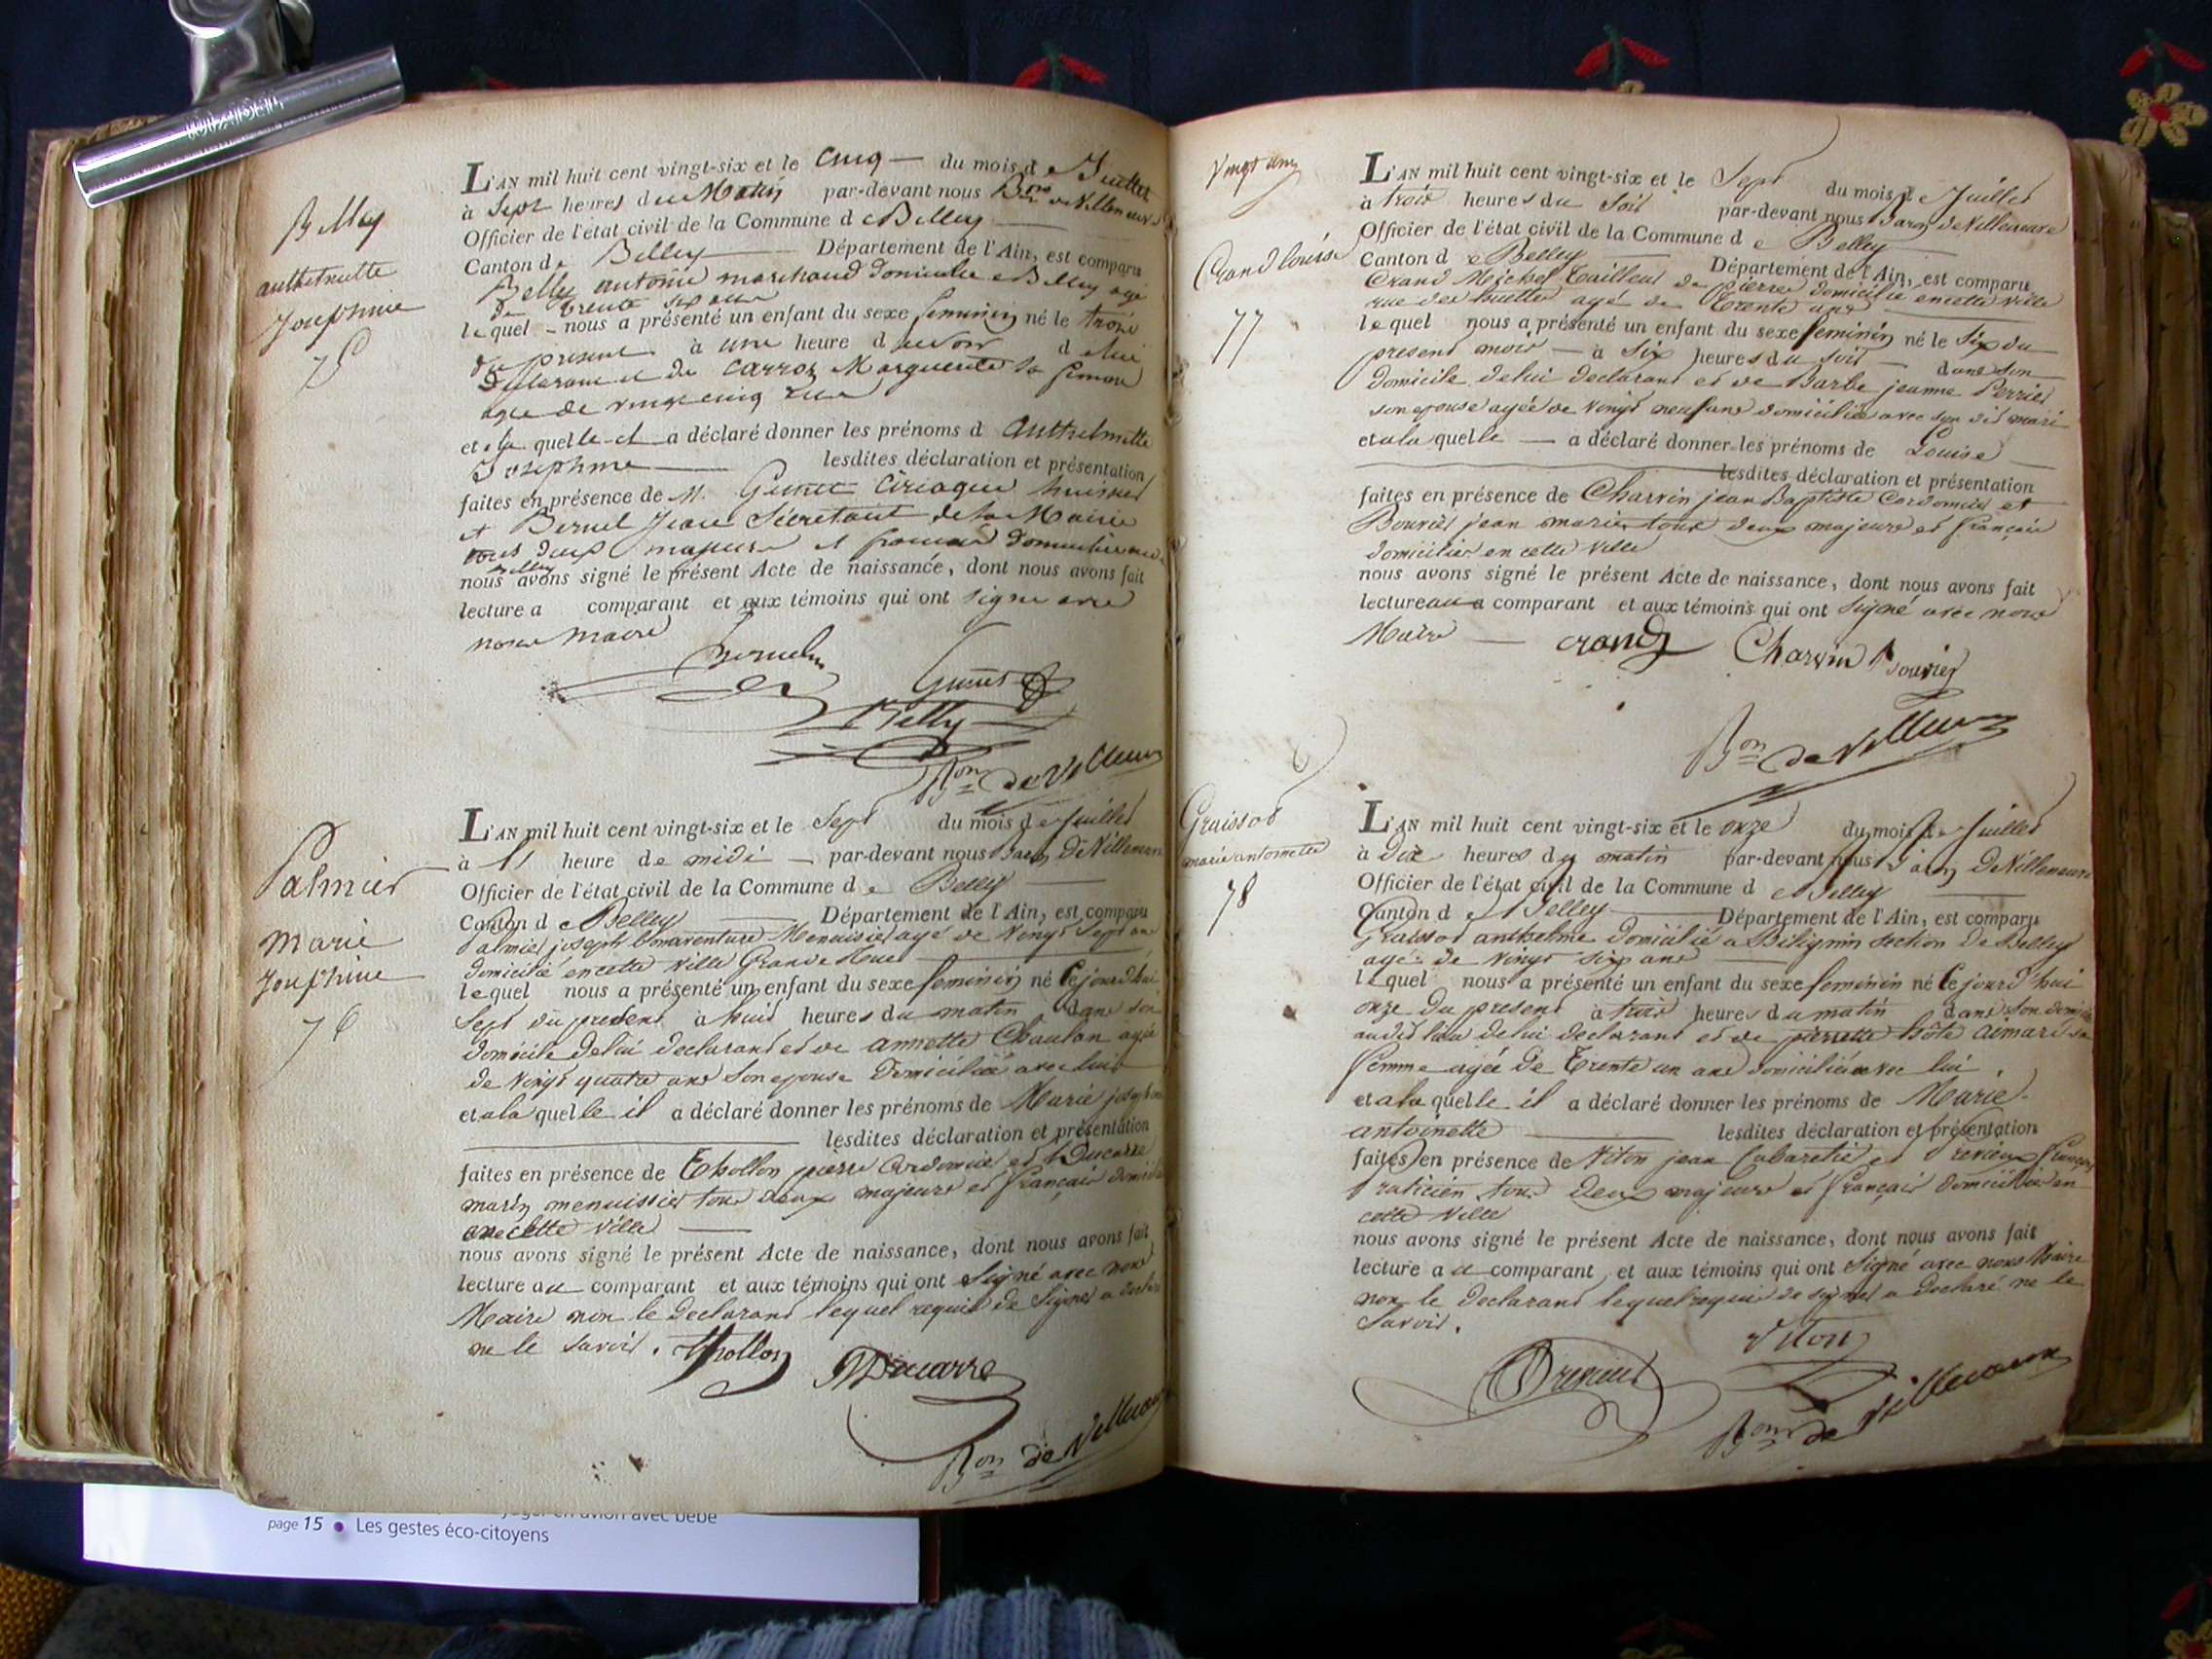 Belley
anthelmette
Josephine
75
L'AN mil huit cent vingt-six et le Cinq du mois de Juillet
à Sept heures du Matin par-devant nous Bon de Villeneuve
Officier de l'état civil de la Commune de Belley
Canton de Belley Département de l'Ain, est comparu
Belly antoine marchand domicilié a Belley agé
de trente six ans
lequel nous a présenté un enfant du sexe feminin né le trois
du present à une heure du soir de lui
declarant et de Carroz Marguerite sa femme
agée de vingt cinq ans
et a la quelle il a déclaré donner les prénoms d Anthelmette
Josephine lesdites déclaration et présentation
faites en présence de M. Ciriaque huissier
et Bernel Jean Secretaire de la Mairie
tous deux majeurs et francais domiciliés a
Belley
nous avons signé le présent Acte de naissance, dont nous avons fait
lecture a comparant et aux témoins qui ont signé avec
nous Maire
Belly
Bon de Villeneuve
Palmier
Marie
Josephine
76
L'AN mil huit cent vingt-six et le Sept du mois de Juillet
à 11 heure de midi par-devant nous Baron De Villeneuve
Officier de l'état civil de la Commune de Belley
Canton de Belley Département de l'Ain, est comparu
Palmier joseph bonaventure Menuisier agé de Vingt Sept ans
domicilié en cette ville Grande Rue
lequel nous a présenté un enfant du sexe feminin né Cejourd'hui
Sept du present à huit heures du matin dans son
domicile de lui declarant et de annette Chaulon agée
de Vingt quatre ans Son epouse Domiciliée avec lui
et a la quelle il a déclaré donner les prénoms de Marie josephine
lesdites déclaration et présentation
faites en présence de Thollon pierre Cordonnier et Ducarre
marin menuissier tous deux majeurs et francais domiciliés
en cette ville
nous avons signé le présent Acte de naissance, dont nous avons fait
lecture au comparant et aux témoins qui ont Signé avec nous
Maire non le Declarant lequel requis de Signer a declaré
ne le savoir. Thollon MDucarre
Bon de Villeneuve
Vingt ans
Crand louise
77
L'AN mil huit cent vingt-six et le Sept du mois de Juillet
à trois heures du Soir par-devant nous Baron de Villeneuve
Officier de l'état civil de la Commune de Belley
Canton de Belley Département de l'Ain, est comparu
Crand Michel tailleur de pierre domicilié en cette ville
rue des agé de Trente ans
lequel nous a présenté un enfant du sexe feminin né le Six du
present mois à Six heures du soir dans son
domicile de lui declarant et de Barbe jeanne Perrier
son epouse agée de Vingt neuf ans domiciliée avec son dit mari
et a la quelle a déclaré donner les prénoms de Louise
lesdites déclaration et présentation
faites en présence de Charvin jean Baptiste Cordonnier et
Bouvier jean marie tous deux majeurs et francais
domiciliés en cette ville
nous avons signé le présent Acte de naissance, dont nous avons fait
lecture au comparant et aux témoins qui ont Signé avec nous
Maire crand Charvin Bouvier
Bon de Villeneuve
Graissot
marie antoinette
78
L'AN mil huit cent vingt-six et le onze du mois de Juillet
à dix heures du matin par-devant nous Baron De Villeneuve
Officier de l'état civil de la Commune de Belley
Canton de Belley Département de l'Ain, est comparu
Graissot anthelme domicilié a Bilignin section de Belley
agé de Vingt six ans
lequel nous a présenté un enfant du sexe feminin né Cejourd'hui
onze du present à trois heures du matin dans son domicile
audit lieu de lui declarant et de pierrette hôte aimard sa
femme agée de Trente un ans domiciliée avec lui
et a la quelle il a déclaré donner les prénoms de Marie
antoinette lesdites déclaration et présentation
faites en présence de Viton jean Cabaretier et
Praticien tous deux majeurs et francais domiciliés en
cette ville
nous avons signé le présent Acte de naissance, dont nous avons fait
lecture au comparant et aux témoins qui ont Signé avec nous Maire
non le Declarant lequel requis de signer a declaré ne le
savoir.
Viton
Bon de Villeneuve
page 15 • Les gestes éco-citoyens